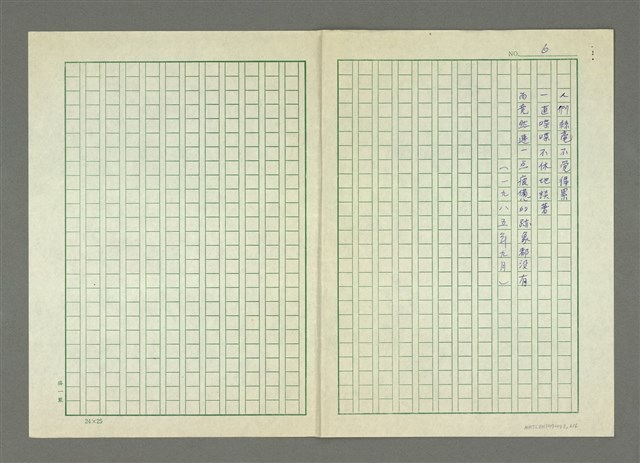 NO. 6
人們絲毫不覺得累
一直喋喋不休地談著
而竟然連一点疲憊的跡象都没有
(一九八五年九月)
24×25